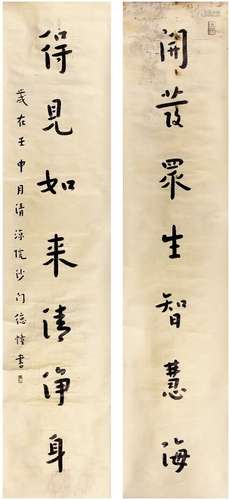 開發眾生智慧海
得見如来清淨身
歲在壬申月清涼院沙門
書